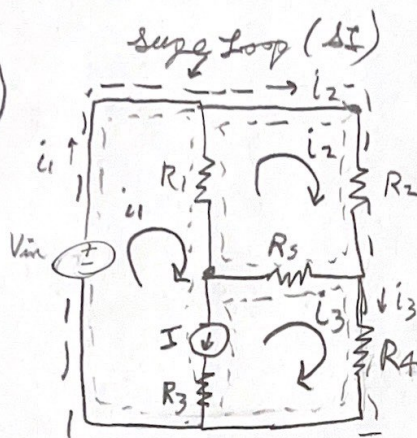 Supe Loop (SI)
i2
i1
R1
i2
R2
i1
Vin
±
R5
i3
i3
I
R4
R3